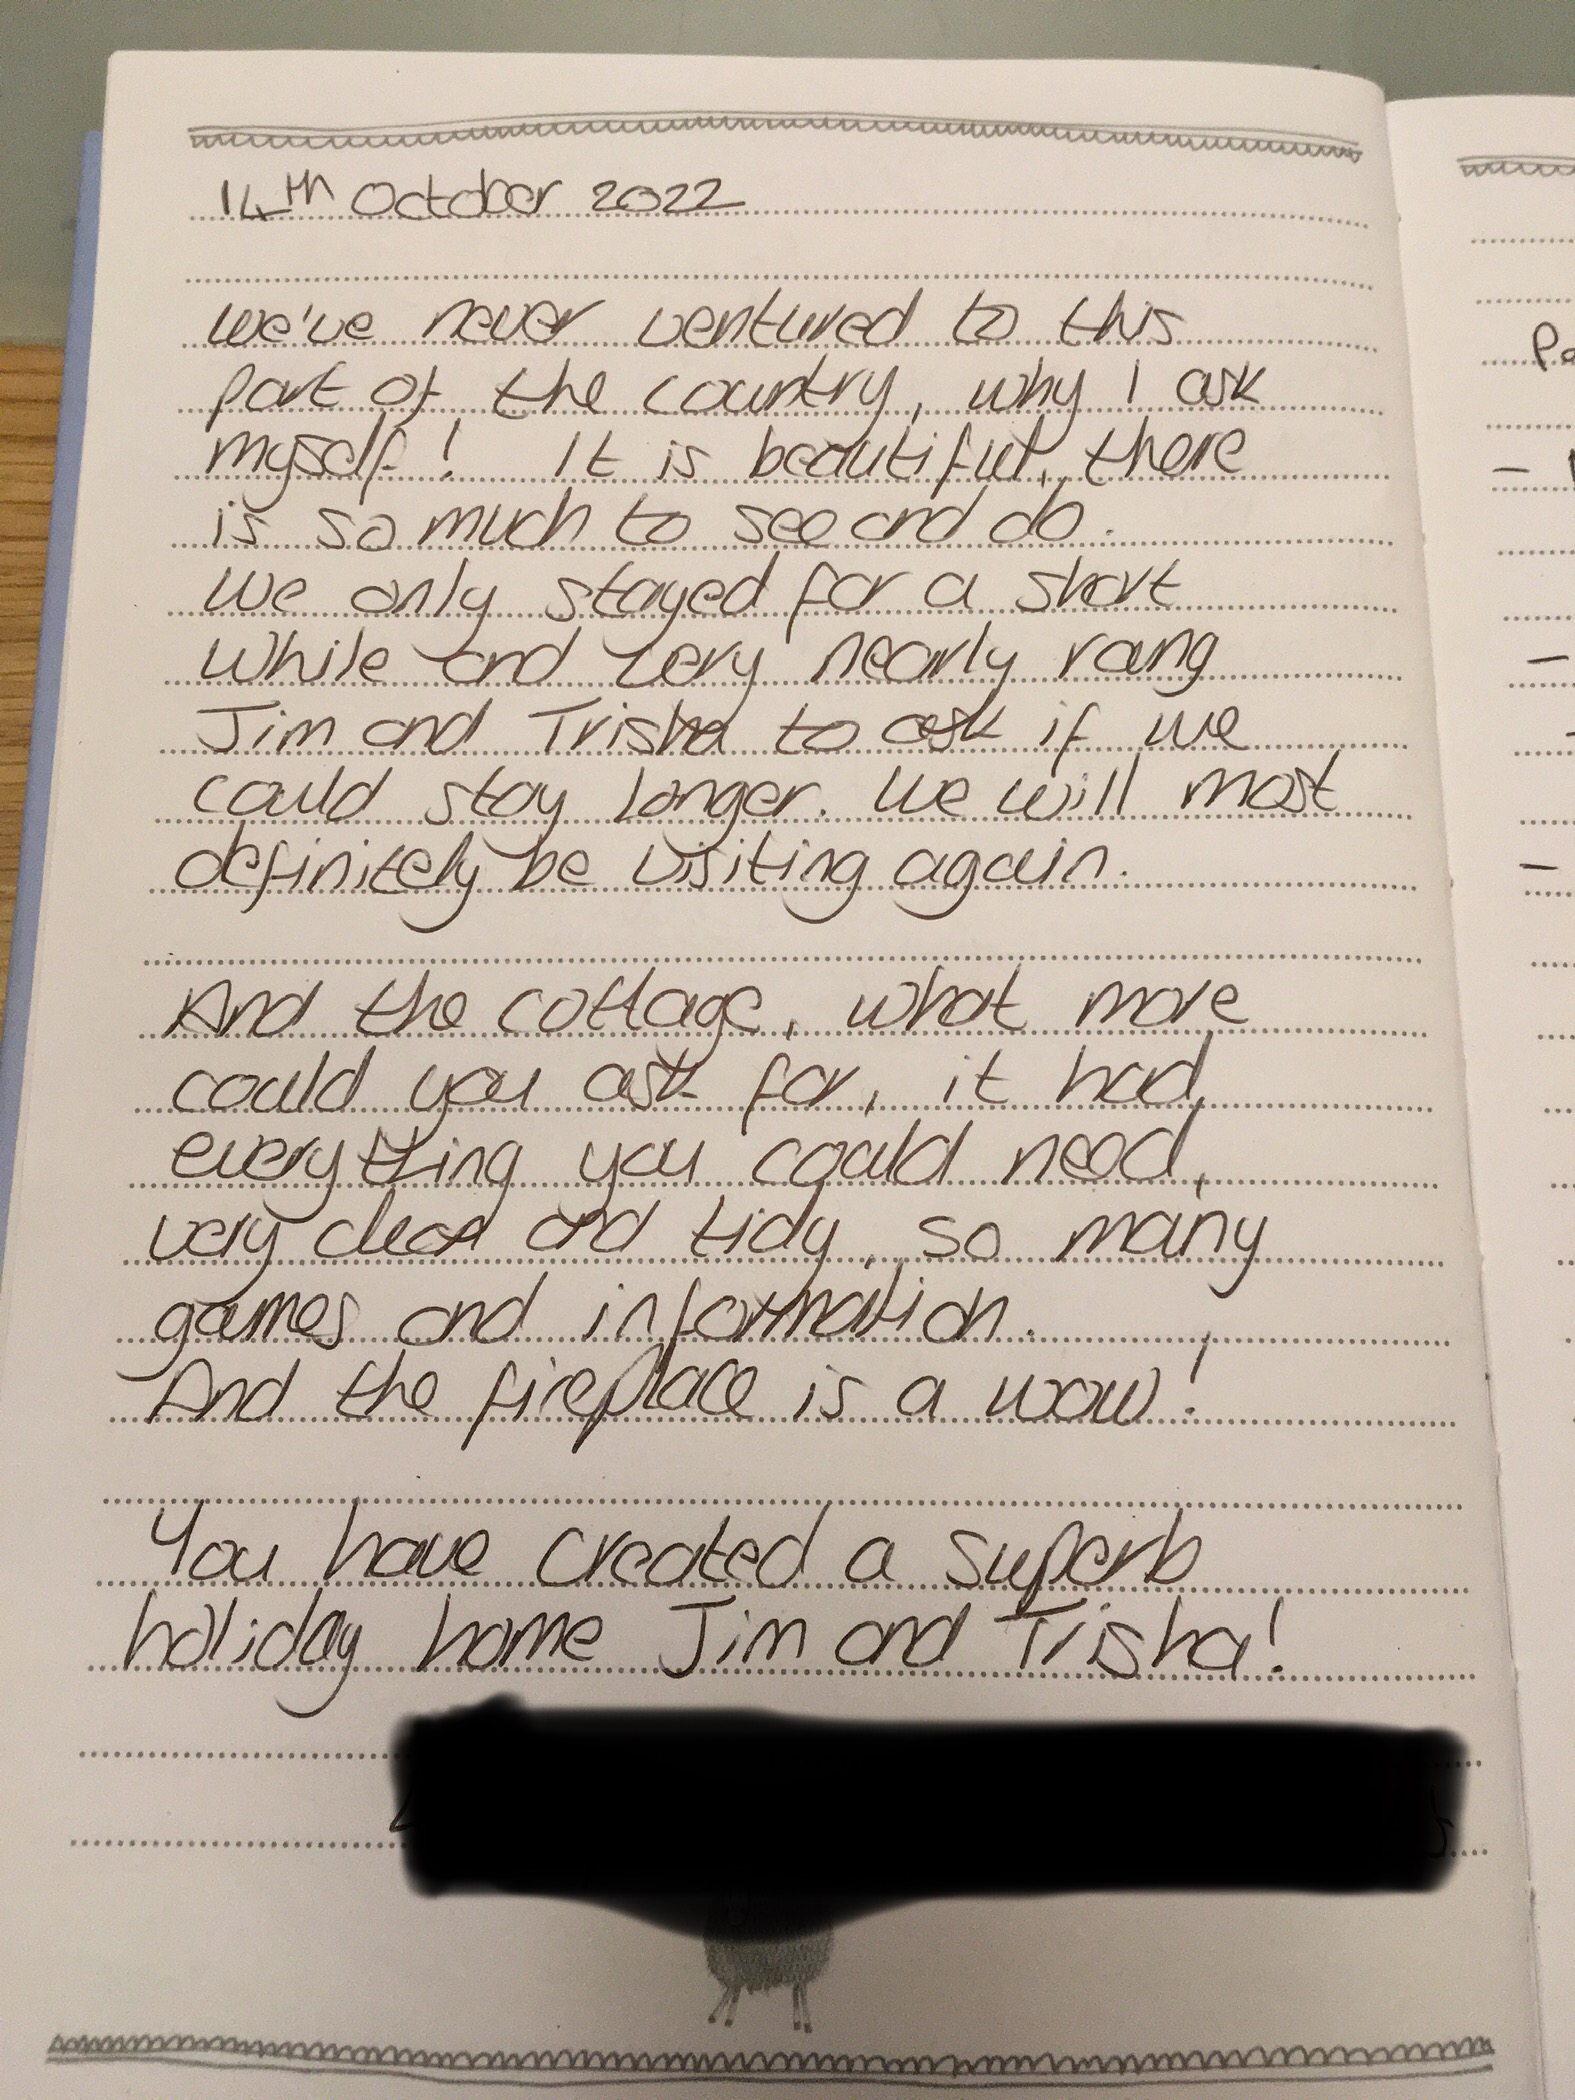 14th October 2022
We've never ventured to this
part of the country, why I ask
myself! It is beautiful, there
is so much to see and do.
We only stayed for a short
while and very nearly rang
Jim and Trisha to ask if we
could stay longer. We will most
definitely be visiting again.
And the cottage, what more
could you ask for, it had
everything you could need,
very clean and tidy, so many
games and information.
And the fireplace is a wow!
You have created a superb
holiday home Jim and Trisha!